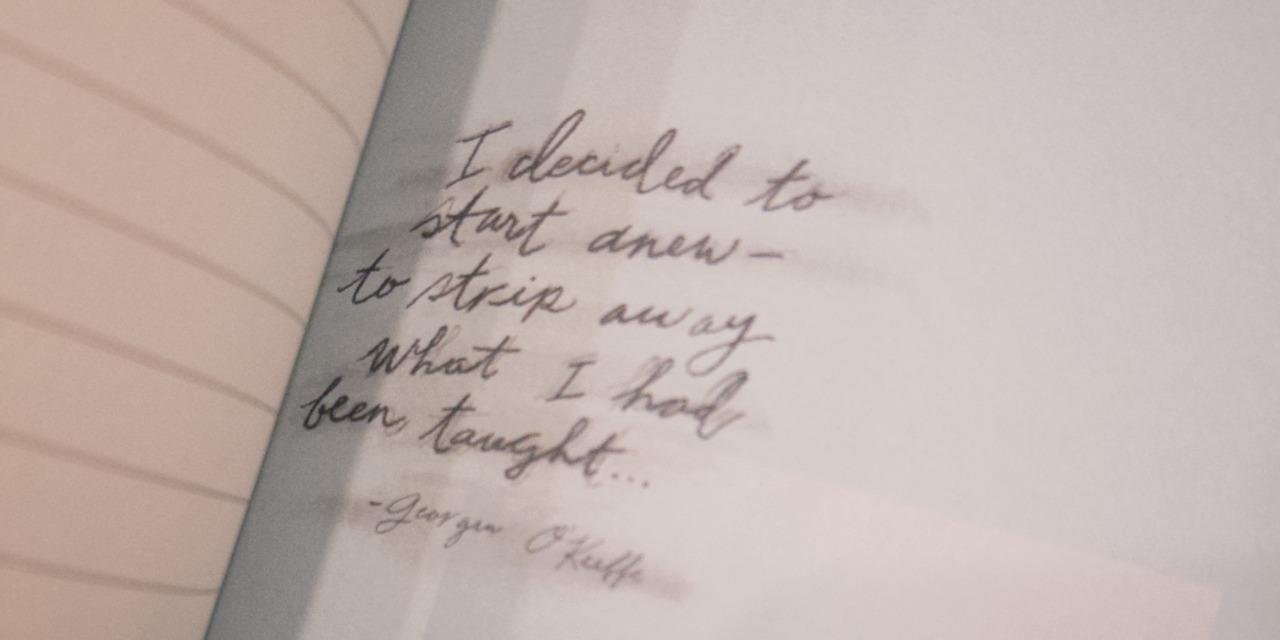 I decided to
start anew-
to strip away
what I had
been taught...
-Georgia O'Keeffe